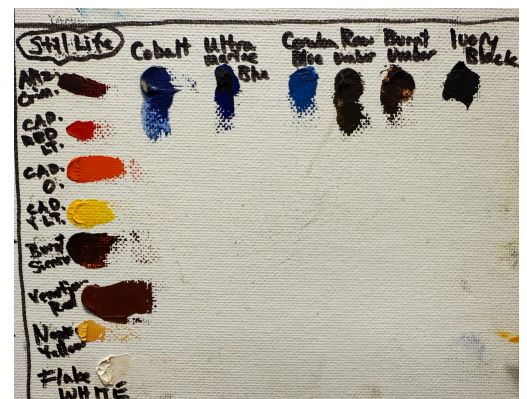 Still Life
Cobalt
Ultra
marine
Blue
Cerulean
Blue
Raw
Umber
Burnt
Umber
Ivory
Black
Aliz.
Crim.
CAD.
RED
LT.
CAD.
O.
CAD.
Y LT.
Burnt
Sienna
Venetian
Red
Naples
Yellow
Flake
WHITE